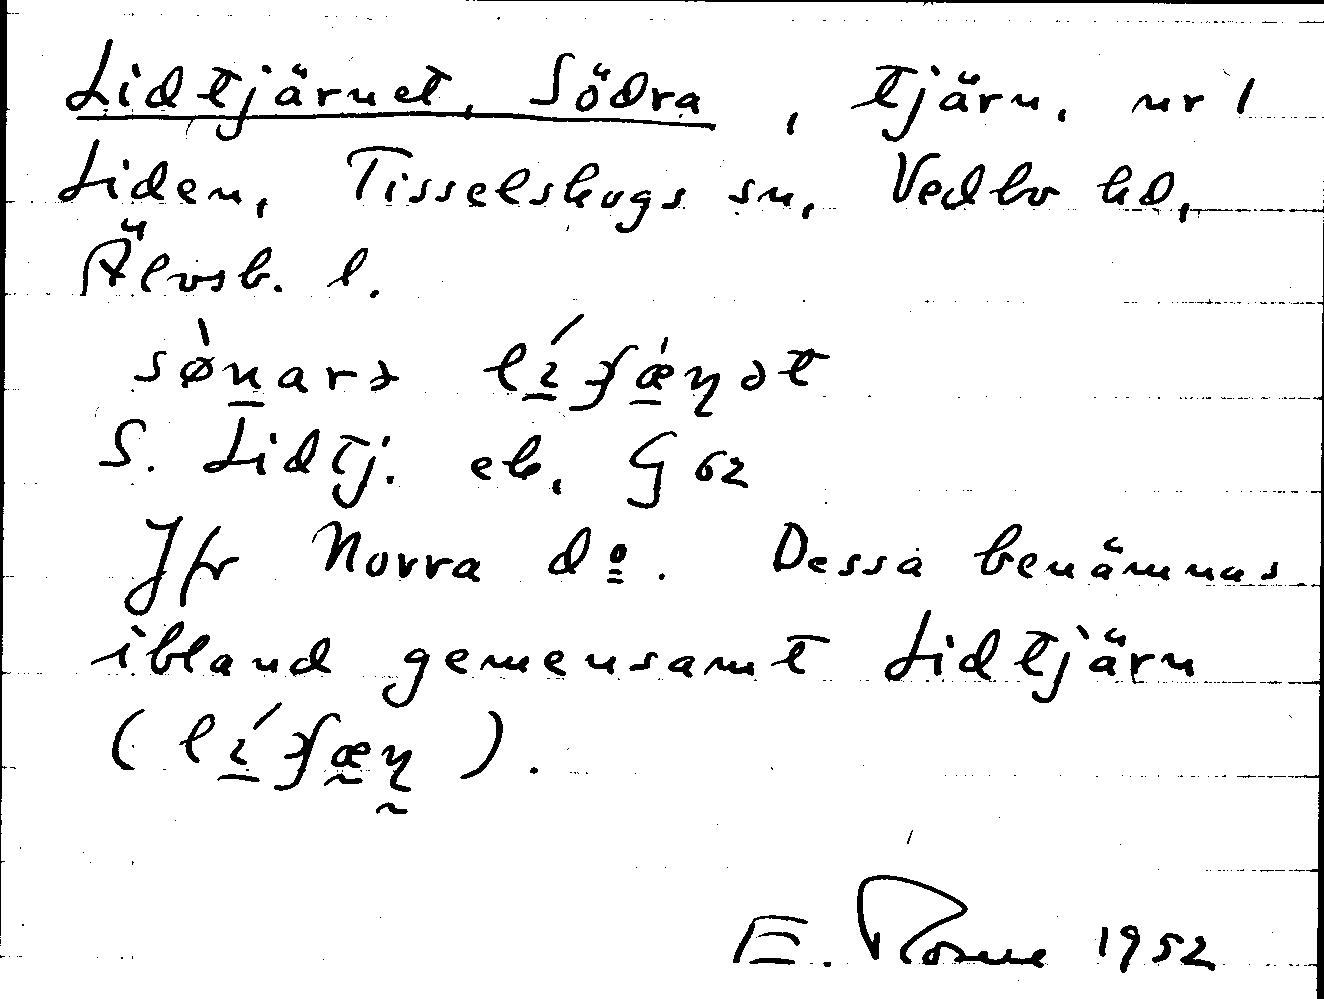 Lidtjärnet, Södra, tjärn, nr 1
Liden, Tisselskogs sn, Vedbo hd,
Älvsb. l.
S. Lidtj. ek, G 62
Jfr Norra dº. Dessa benämnas
ibland gemensamt Lidtjärn
E. Rosme 1952